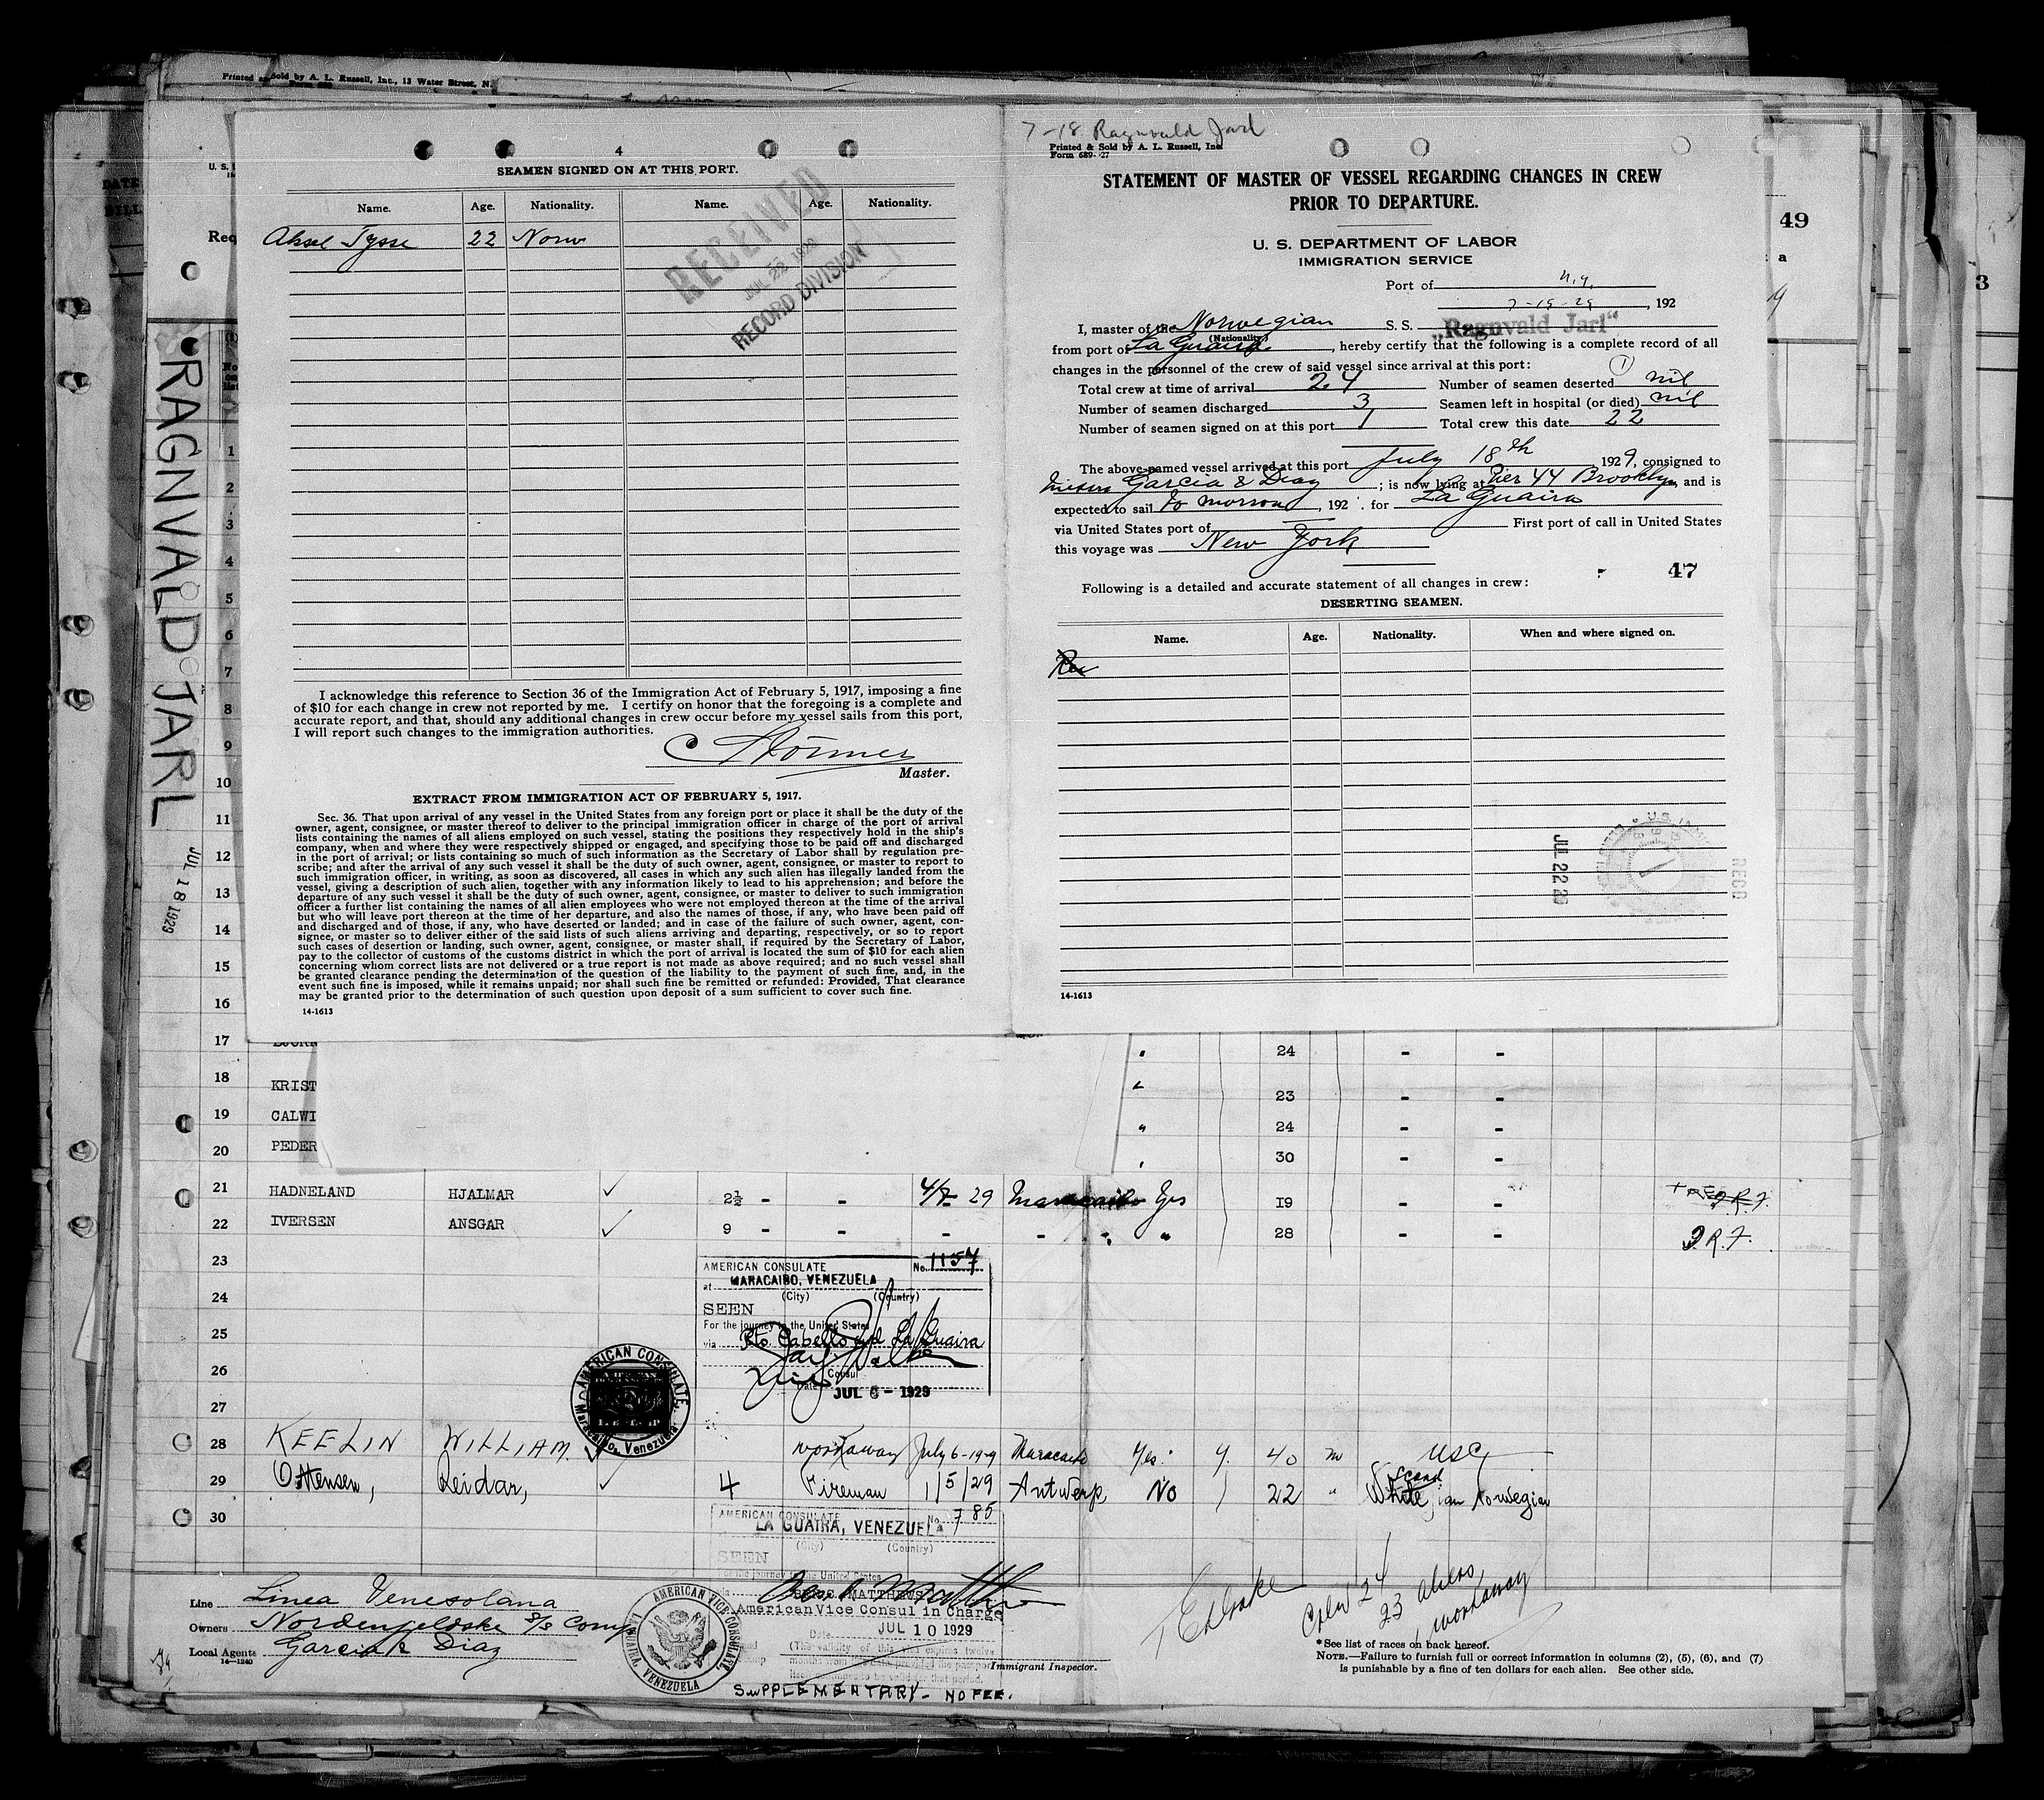 Printed and Sold by A. L. Russell, Inc., 13 Water Street, N.
4
SEAMEN SIGNED ON AT THIS PORT.
Name. Age. Nationality. Name. Age. Nationality.
Aksel Tysse 22 Norw
RECEIVED
JUL 22
RECORD DIVISION
I acknowledge this reference to Section 36 of the Immigration Act of February 5, 1917, imposing a fine
of $10 for each change in crew not reported by me. I certify on honor that the foregoing is a complete and
accurate report, and that, should any additional changes in crew occur before my vessel sails from this port,
I will report such changes to the immigration authorities.
C Störmer
Master.
EXTRACT FROM IMMIGRATION ACT OF FEBRUARY 5, 1917.
Sec. 36. That upon arrival of any vessel in the United States from any foreign port or place it shall be the duty of the
owner, agent, consignee, or master thereof to deliver to the principal immigration officer in charge of the port of arrival
lists containing the names of all aliens employed on such vessel, stating the positions they respectively hold in the ship's
company, when and where they were respectively shipped or engaged, and specifying those to be paid off and discharged
in the port of arrival; or lists containing so much of such information as the Secretary of Labor shall by regulation pre-
scribe; and after the arrival of any such vessel it shall be the duty of such owner, agent, consignee, or master to report to
such immigration officer, in writing, as soon as discovered, all cases in which any such alien has illegally landed from the
vessel, giving a description of such alien, together with any information likely to lead to his apprehension; and before the
departure of any such vessel it shall be the duty of such owner, agent, consignee, or master to deliver to such immigration
officer a further list containing the names of all alien employees who were not employed thereon at the time of the arrival
but who will leave port thereon at the time of her departure, and also the names of those, if any, who have been paid off
and discharged and of those, if any, who have deserted or landed; and in case of the failure of such owner, agent, con-
signee, or master so to deliver either of the said lists of such aliens arriving and departing, respectively, or so to report
such cases of desertion or landing, such owner, agent, consignee, or master shall, if required by the Secretary of Labor,
pay to the collector of customs of the customs district in which the port of arrival is located the sum of $10 for each alien
concerning whom correct lists are not delivered or a true report is not made as above required; and no such vessel shall
be granted clearance pending the determination of the question of the liability to the payment of such fine, and, in the
event such fine is imposed, while it remains unpaid; nor shall such fine be remitted or refunded: Provided, That clearance
may be granted prior to the determination of such question upon deposit of a sum sufficient to cover such fine.
14-1613
7-18 Ragnvald Jarl
Printed & Sold by A. L. Russell, Inc.
Form 689-27
STATEMENT OF MASTER OF VESSEL REGARDING CHANGES IN CREW
PRIOR TO DEPARTURE.
U. S. DEPARTMENT OF LABOR
IMMIGRATION SERVICE
Port of N.Y.
7-19-29, 192
I, master of the Norwegian S. S. „Ragnvald Jarl"
(Nationality)
from port of La Guaira, hereby certify that the following is a complete record of all
changes in the personnel of the crew of said vessel since arrival at this port: 1
Total crew at time of arrival 24 Number of seamen deserted nil
Number of seamen discharged 3 Seamen left in hospital (or died) nil
Number of seamen signed on at this port 1 Total crew this date 22
The above-named vessel arrived at this port July 18th 1929, consigned to
Messrs Garcia & Diaz; is now lying at Pier 44 Brooklyn, and is
expected to sail to morrow, 192 . for La Guaira
via United States port of First port of call in United States
this voyage was New York
47
Following is a detailed and accurate statement of all changes in crew:
DESERTING SEAMEN.
Name. Age. Nationality. When and where signed on.
JUL 22 29
RECD
14-1613
49
3
RAGNVALD JARL
JUL 18 1929
1
2
3
4
5
6
7
8
9
10
11
12
13
14
15
16
17 24 - -
18 KRIST 23 - -
19 CALWI " 24 - -
20 PEDER 30 - -
21 HADNELAND HJALMAR 2½ - - 4/7 29 Maracaibo Yes 19 - -
22 IVERSEN ANSGAR 9 - - - - " 28 - - J.R.F.
23
24
25
26
27
AMERICAN CONSULATE No. 1157
at MARACAIBO, VENEZUELA
(City) (Country)
SEEN
For the journey to the United States
via Pto Cabello and La Guaira
Consul
Date JUL 6 - 1929
AMERICAN CONSULATE
Maracaibo, Venezuela
28 KEELIN WILLIAM. workaway July 6-1929 Maracaibo Yes. Y. 40 m USC
29 Ottensen, Reidar, 4 Fireman 1/5/29 Antwerp, No 22 " Scand White ian Norwegian
30
AMERICAN CONSULATE No. 785
LA GUAIRA, VENEZUELA
(City) (Country)
SEEN
For the journey to the United States
BEN C. MATTHEWS
American Vice Consul in Charge
Date JUL 10 1929
(The validity of this visa expires twelve
AMERICAN VICE CONSULATE
LA GUAIRA, VENEZUELA
SUPPLEMENTARY - NO FEE.
Immigrant Inspector.
Line Linea Venesolana
Owners Nordenfjeldske S/S Comp
Local Agents Garcia & Diaz
14-1240
Crew 24
23 aliens
1 workaway
*See list of races on back hereof.
NOTE.—Failure to furnish full or correct information in columns (2), (5), (6), and (7)
is punishable by a fine of ten dollars for each alien. See other side.